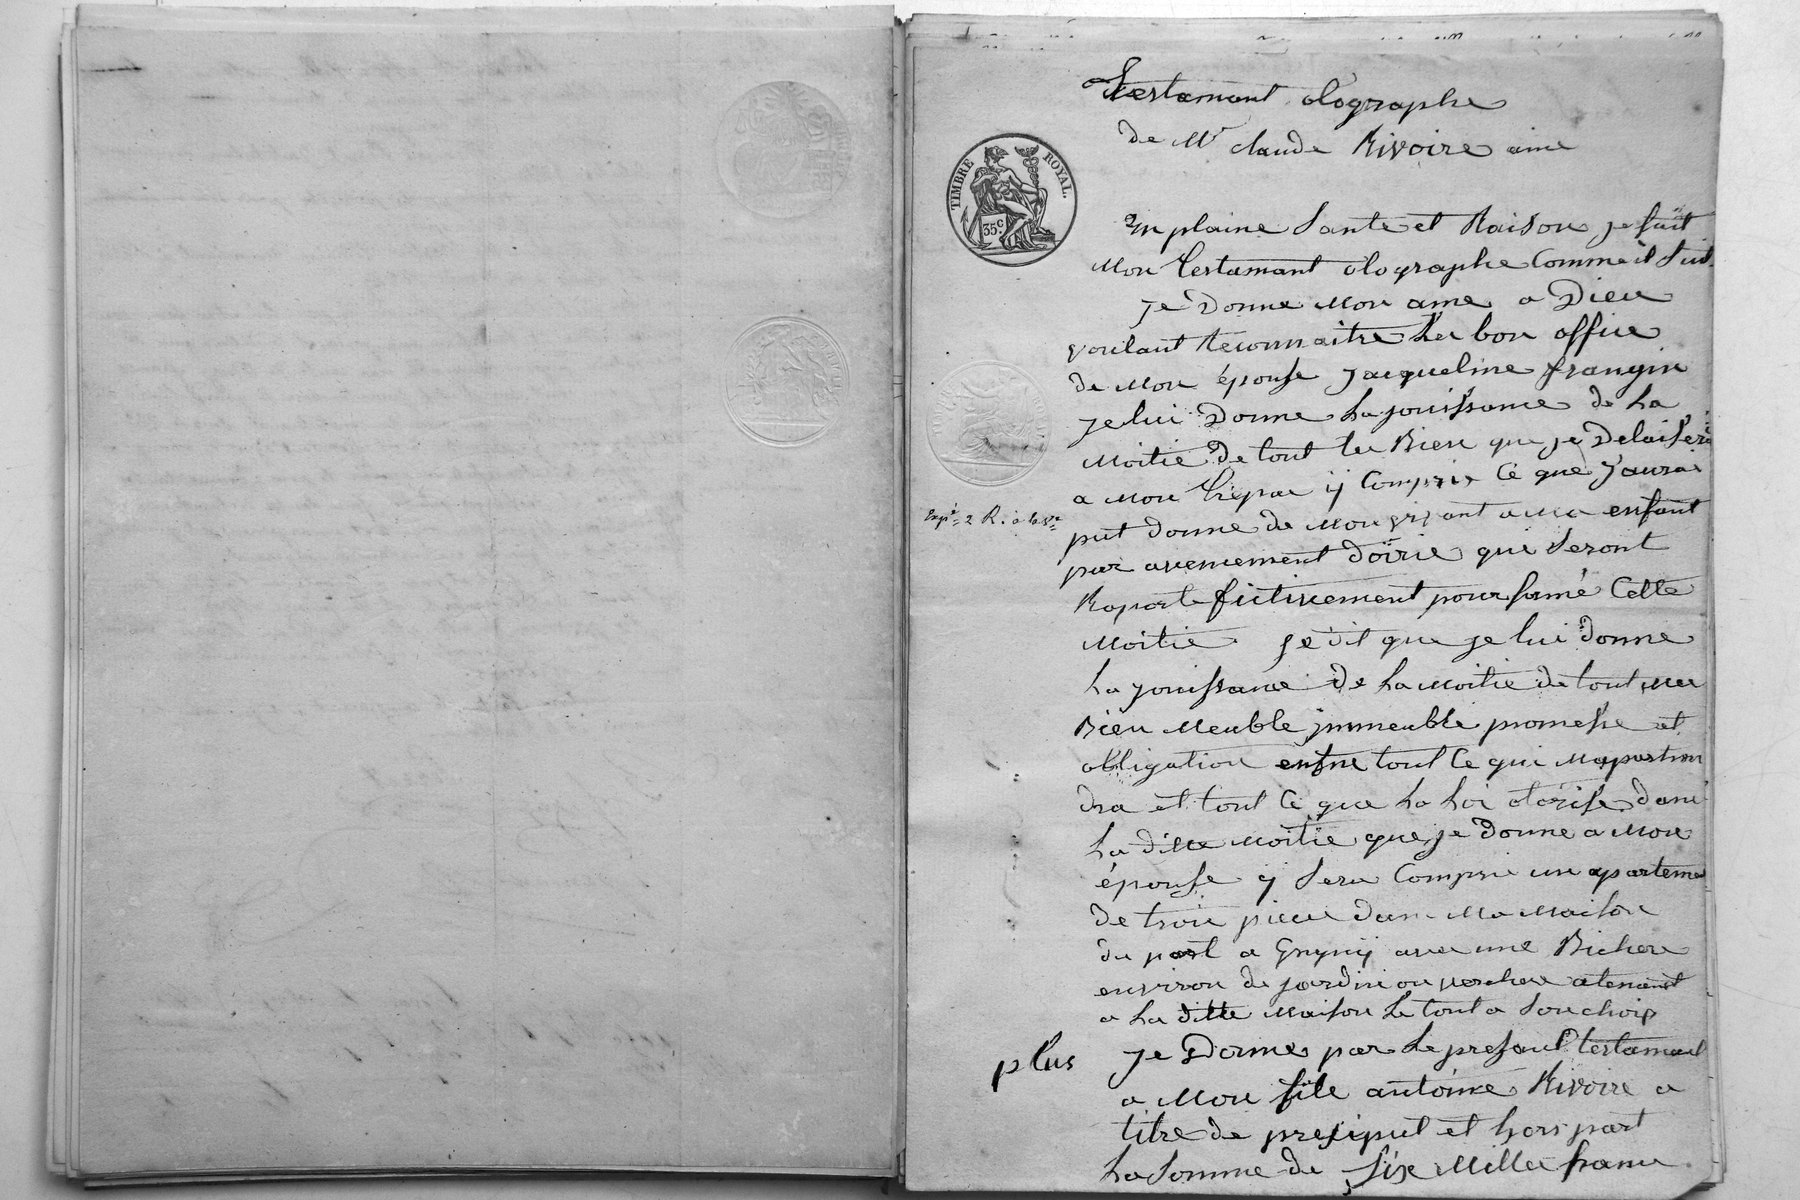 Testamant olographe
de Mr claude Rivoire ainé
TIMBRE ROYAL.
35c
En plaine Santé et Raison je fait
Mon testamant olographe Comme il Suit
je Donne Mon ame a Dieu
voulant Reconnaitre Les bon office
de Mon épouse jacqueline frangin
je lui Donne La jouissance de La
Moitié De tout les Bien que je Delaiserai
a Mon trépas ij Compris Cé que j'aurai
put donné de Mon vivant a Mes enfant
par avencement doirie qui Seront
Raporté fictivement pour formé Cette
Moitié je dit que je lui donne
La jouissance de La Moitié de tout Mes
Bien Meuble immeuble promesse et
obligation enfin tout Ce qui Mapartien
dra et tout Cé que La Loi otorise dans
La ditte Moitié que je Donne a Mon
épouse ij Sera Compris un aparteme
De trois piece dans Ma Maison
du port a Grigny avec une Bicheré
environ de jardin ou verchere atenant
a La ditte Maison Le tout a Son choix
plus je Donne par Le present testamant
a Mon fils antoine Rivoire a
titre de preciput et hors part
La Somme de Six Milles francs